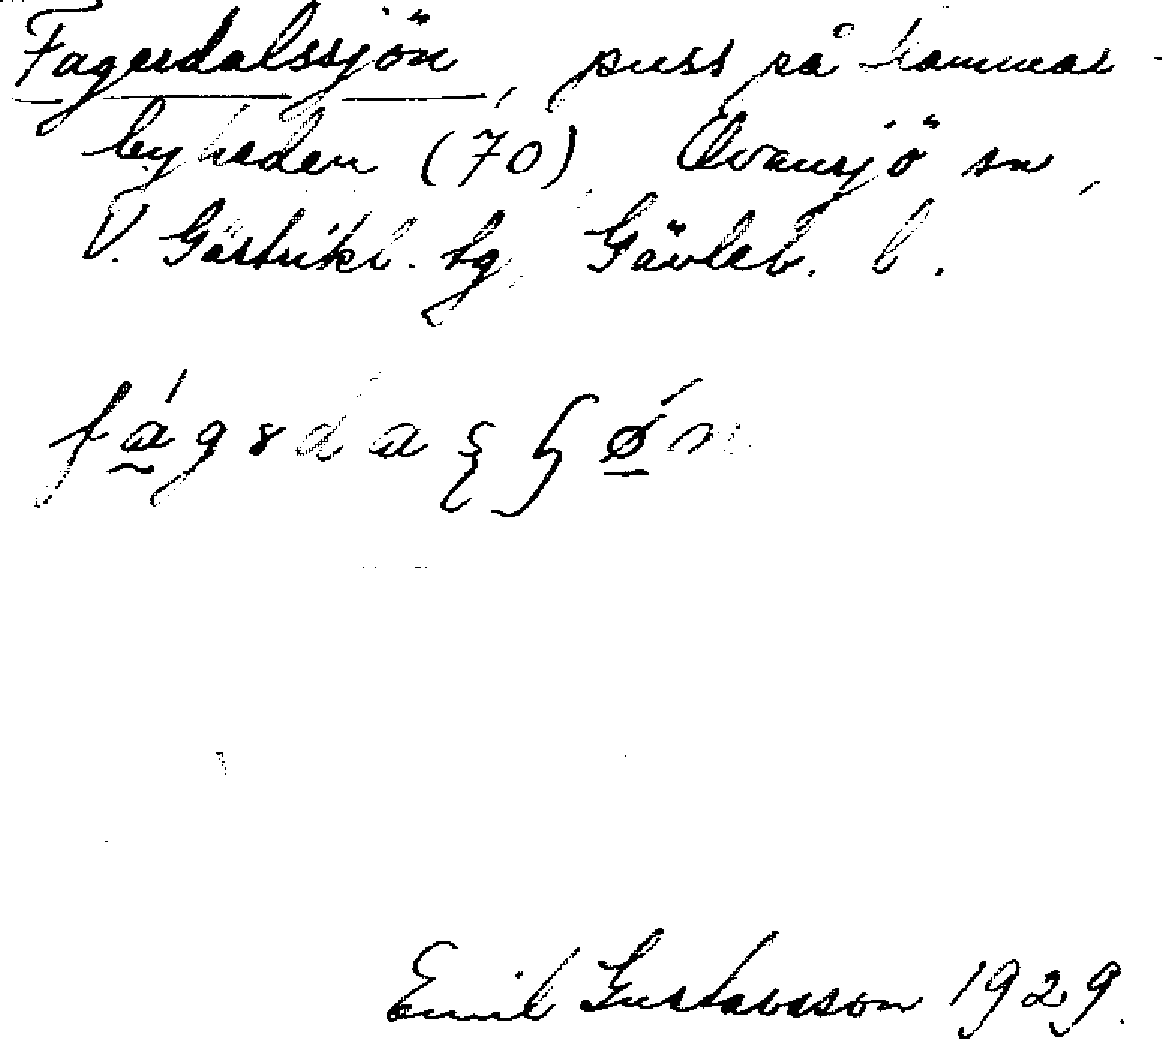 Fagerdalssjön, puss på hammar-
byheden (70), Ovansjö sn,
V. Gästrikl. tg, Gävleb. l.
fágɘdaʂʃǿn
Emil Gustavsson 1929.